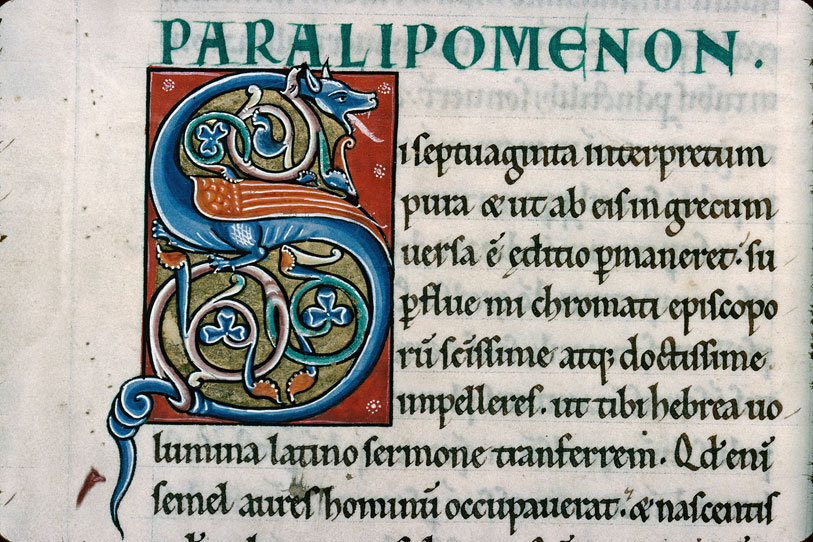 PARALIPOMENON.
Si septuaginta interpretum
pura & ut ab eis in grecum
versa ē ęditio ꝑmaneret. su
ꝑflue mi chromati episcopo
rū scīssime atq; doctissime
impelleres. ut tibi hebrea uo
lumina latino sermone tranferrem. Qđ enī
semel aures hominū occupauerat. & nascentis